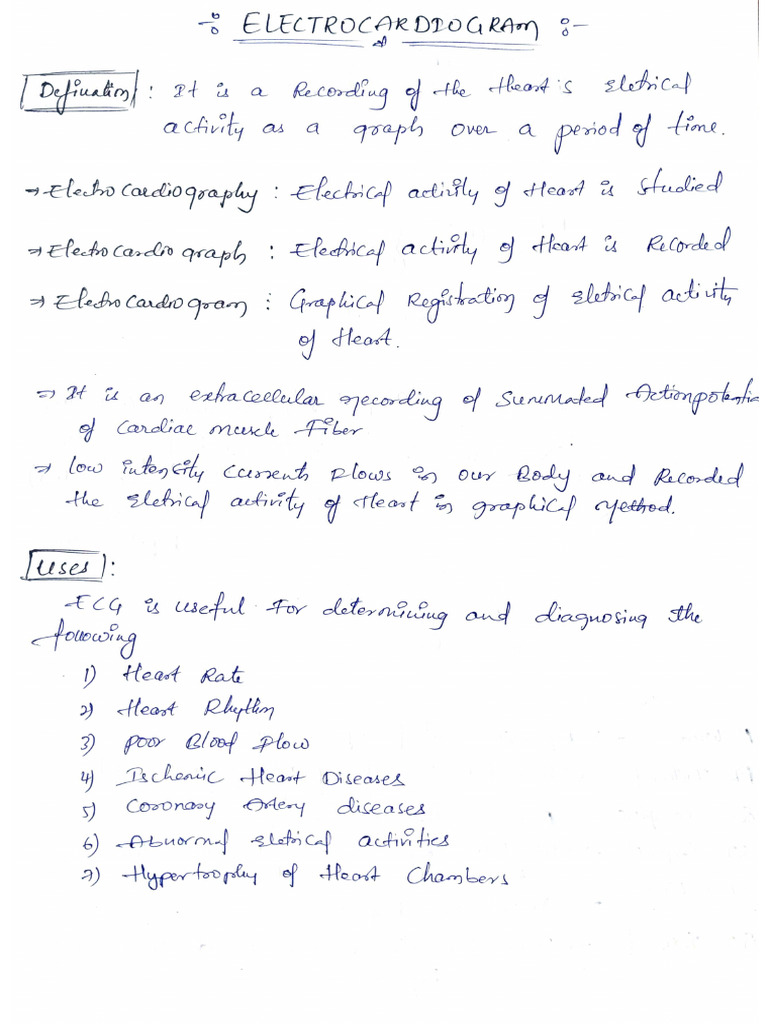 ELECTROCARDIOGRAM
Defination : It is a Recording of the Heart's Eletrical
activity as a graph over a period of time.
→ Electrocardiography : Electrical activity of Heart is Studied
→ Electrocardiograph : Electrical activity of Heart is Recorded
⇒ Electrocardiogram : Graphical Registration of Eletrical activity
of Heart.
⇒ It is an extracellular recording of Summated Actionpotential
of Cardiac muscle Fiber
→ low intensity currents Flows in our Body and Recorded
the Eletrical activity of Heart in graphical method.
Uses :
ECG is useful For determining and diagnosing the
following
1) Heart Rate
2) Heart Rhythm
3) poor Blood Flow
4) Ischemic Heart Diseases
5) Coronary Artery diseases
6) Abnormal Eletrical activities
7) Hypertrophy of Heart Chambers